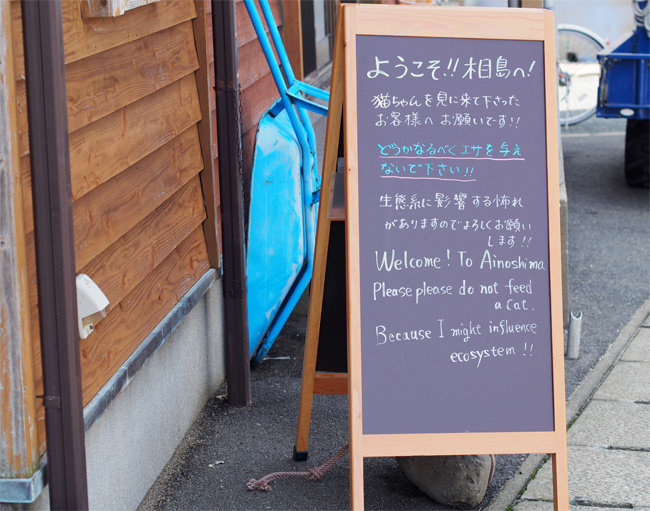 ようこそ!!相島へ!
猫ちゃんを見に来て下さった
お客様へ お願いです!!
どうかなるべくエサを与え
ないで下さい!!
生態系に影響する怖れ
がありますのでよろしくお願い
します!!
Welcome! To Ainoshima
Please please do not feed
a cat.
Because I might influence
ecosystem !!